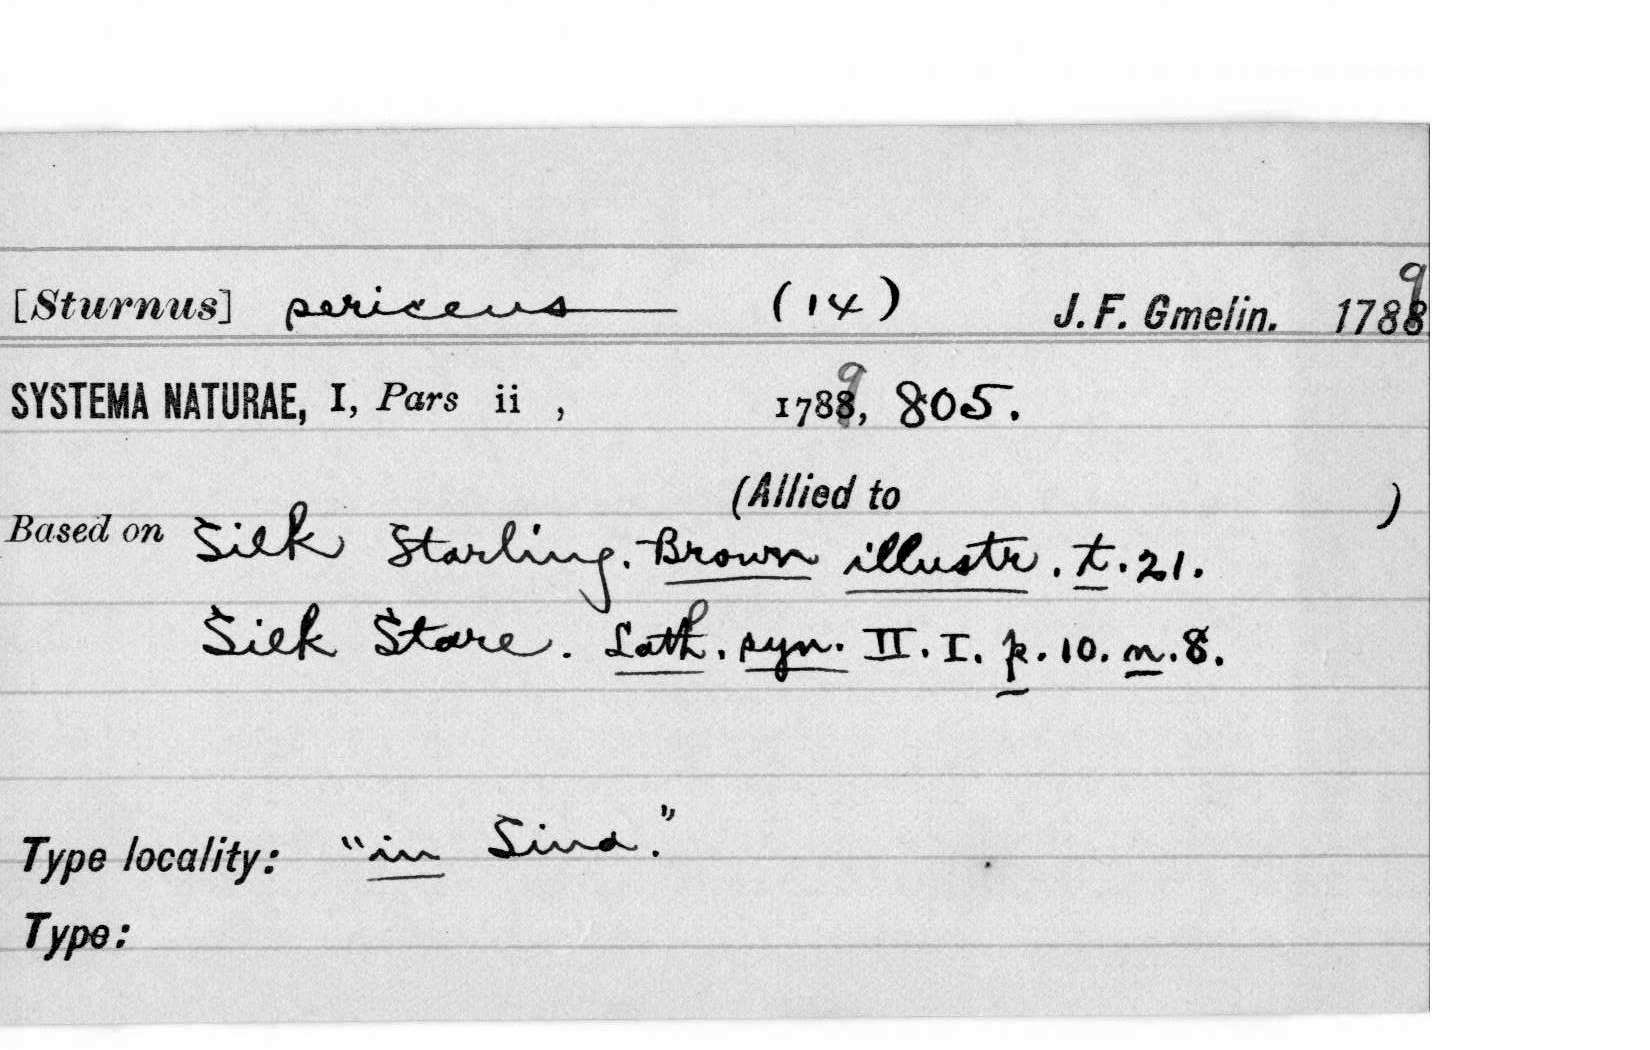 [Sturnus] sericeus (14) J. F. Gmelin. 1789
SYSTEMA NATURAE, I, Pars ii , 1789, 805.
(Allied to )
Based on Silk Starling. Brown illustr. t. 21.
Silk Stare. Lath. syn. II. I. p. 10. n. 8.
Type locality: "in Sina."
Type: